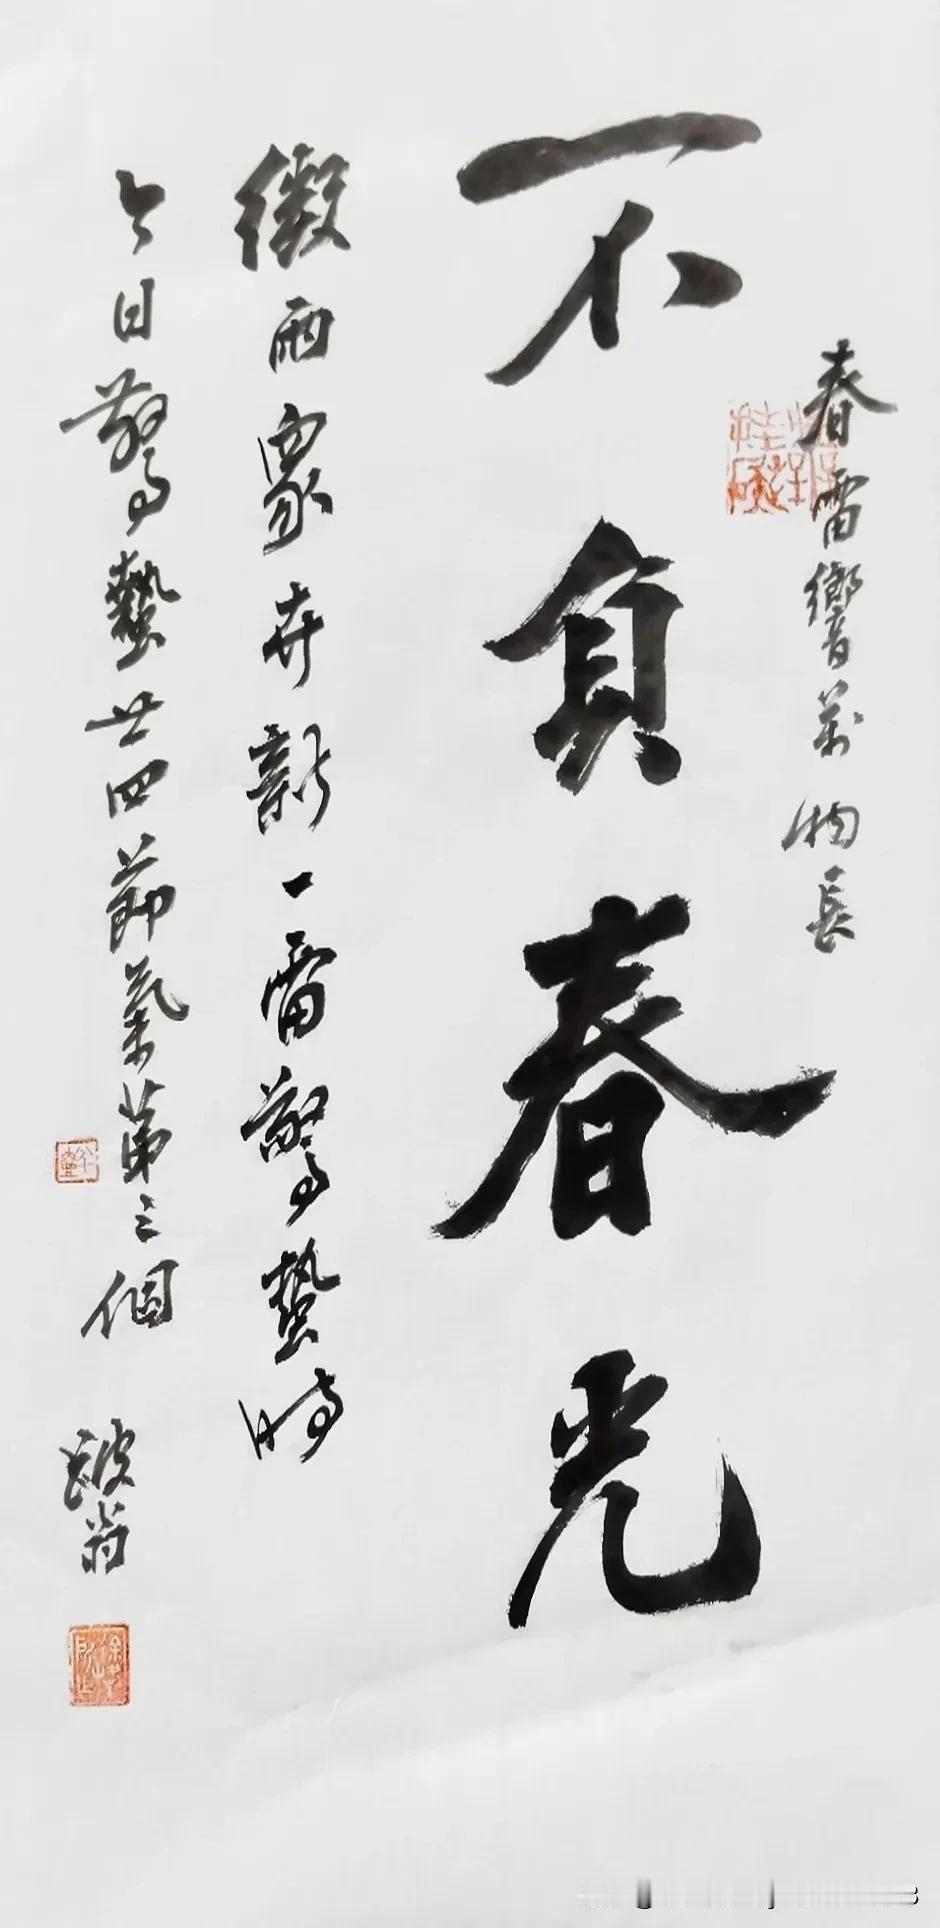 春雷響萬物長
不負春光
微雨眾卉新一雷驚蟄時
今日驚蟄廿四節氣第三個
翁